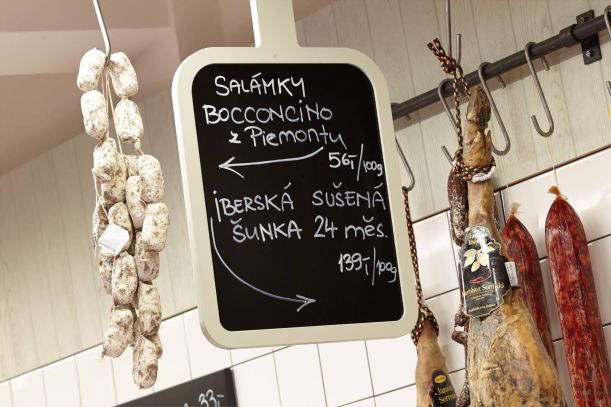 SALÁMKY
BOCCONCINO
z PIEMONTU
56,-/100g
IBERSKÁ SUŠENÁ
ŠUNKA 24 MĚS.
139,-/100g
33,-